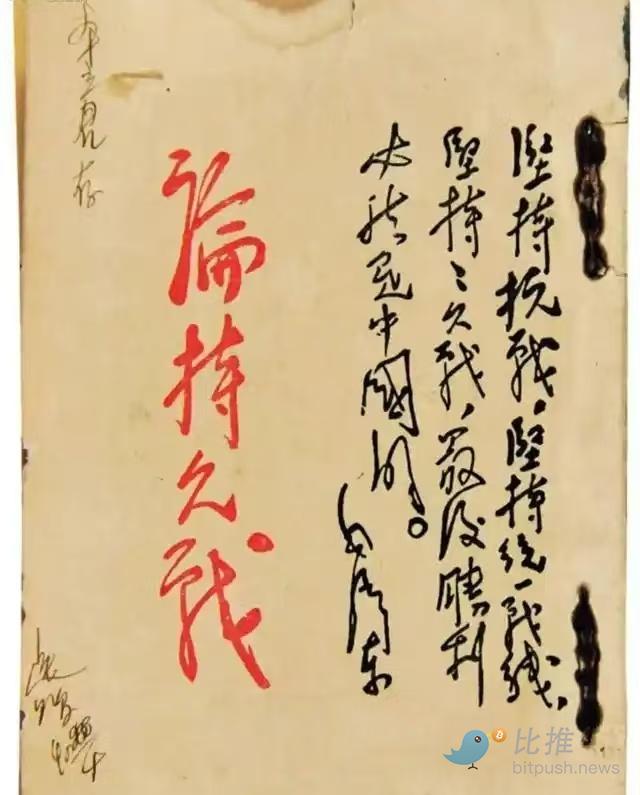 堅持抗戰，堅持統一戰綫，
堅持持久戰，最後勝利
必然是中國的。
毛澤東
論持久戰
存
比推
bitpush.news